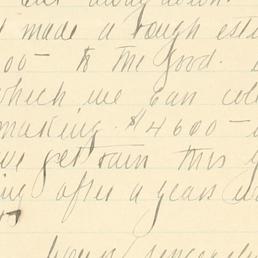 but away down.
made a rough esti
00- to the good.
which we can col
making. $4600-
we get rain this y
ing after a years w
your sincerely